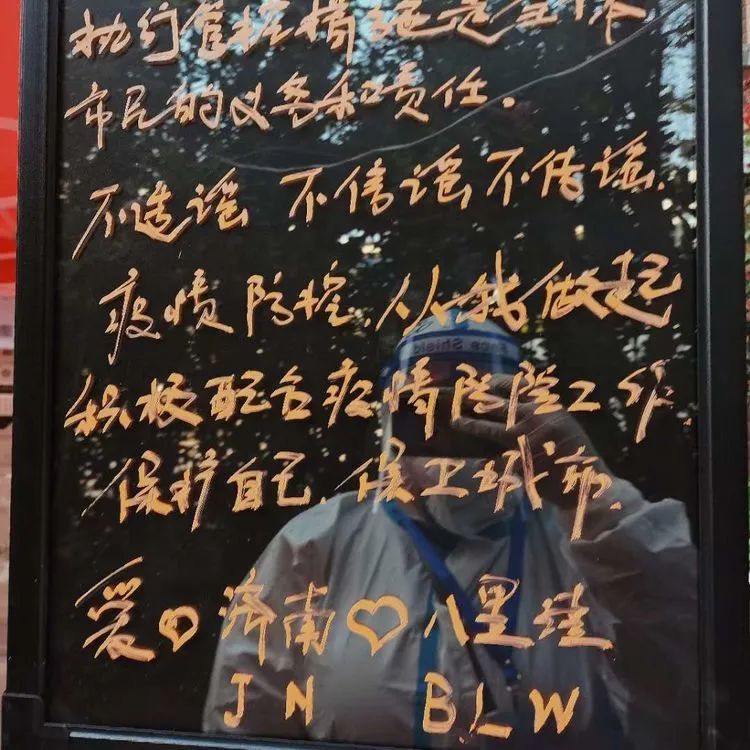 执行管控措施是全体
市民的义务和责任。
不造谣 不信谣 不传谣.
疫情防控.从我做起
积极配合疫情防控工作.
保护自己.保卫城市.
爱♡济南♡八里洼
JN BLW
Face Shield